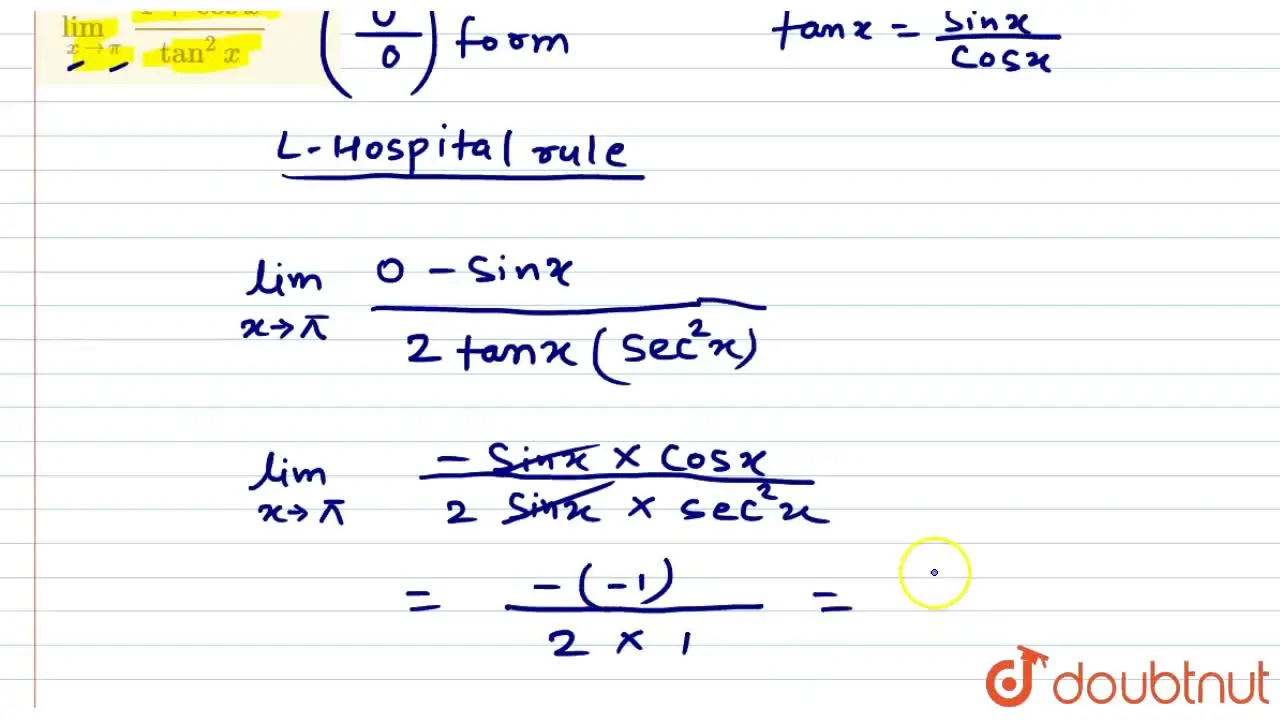 lim x→π 1 + cos x / tan² x (0/0) form tanx = sinx / cosx
L-Hospital rule
lim x→π 0 - sinx / 2 tanx (sec²x)
lim x→π - sinx × cosx / 2 sinx × sec²x
= -(-1) / 2 × 1 =
doubtnut